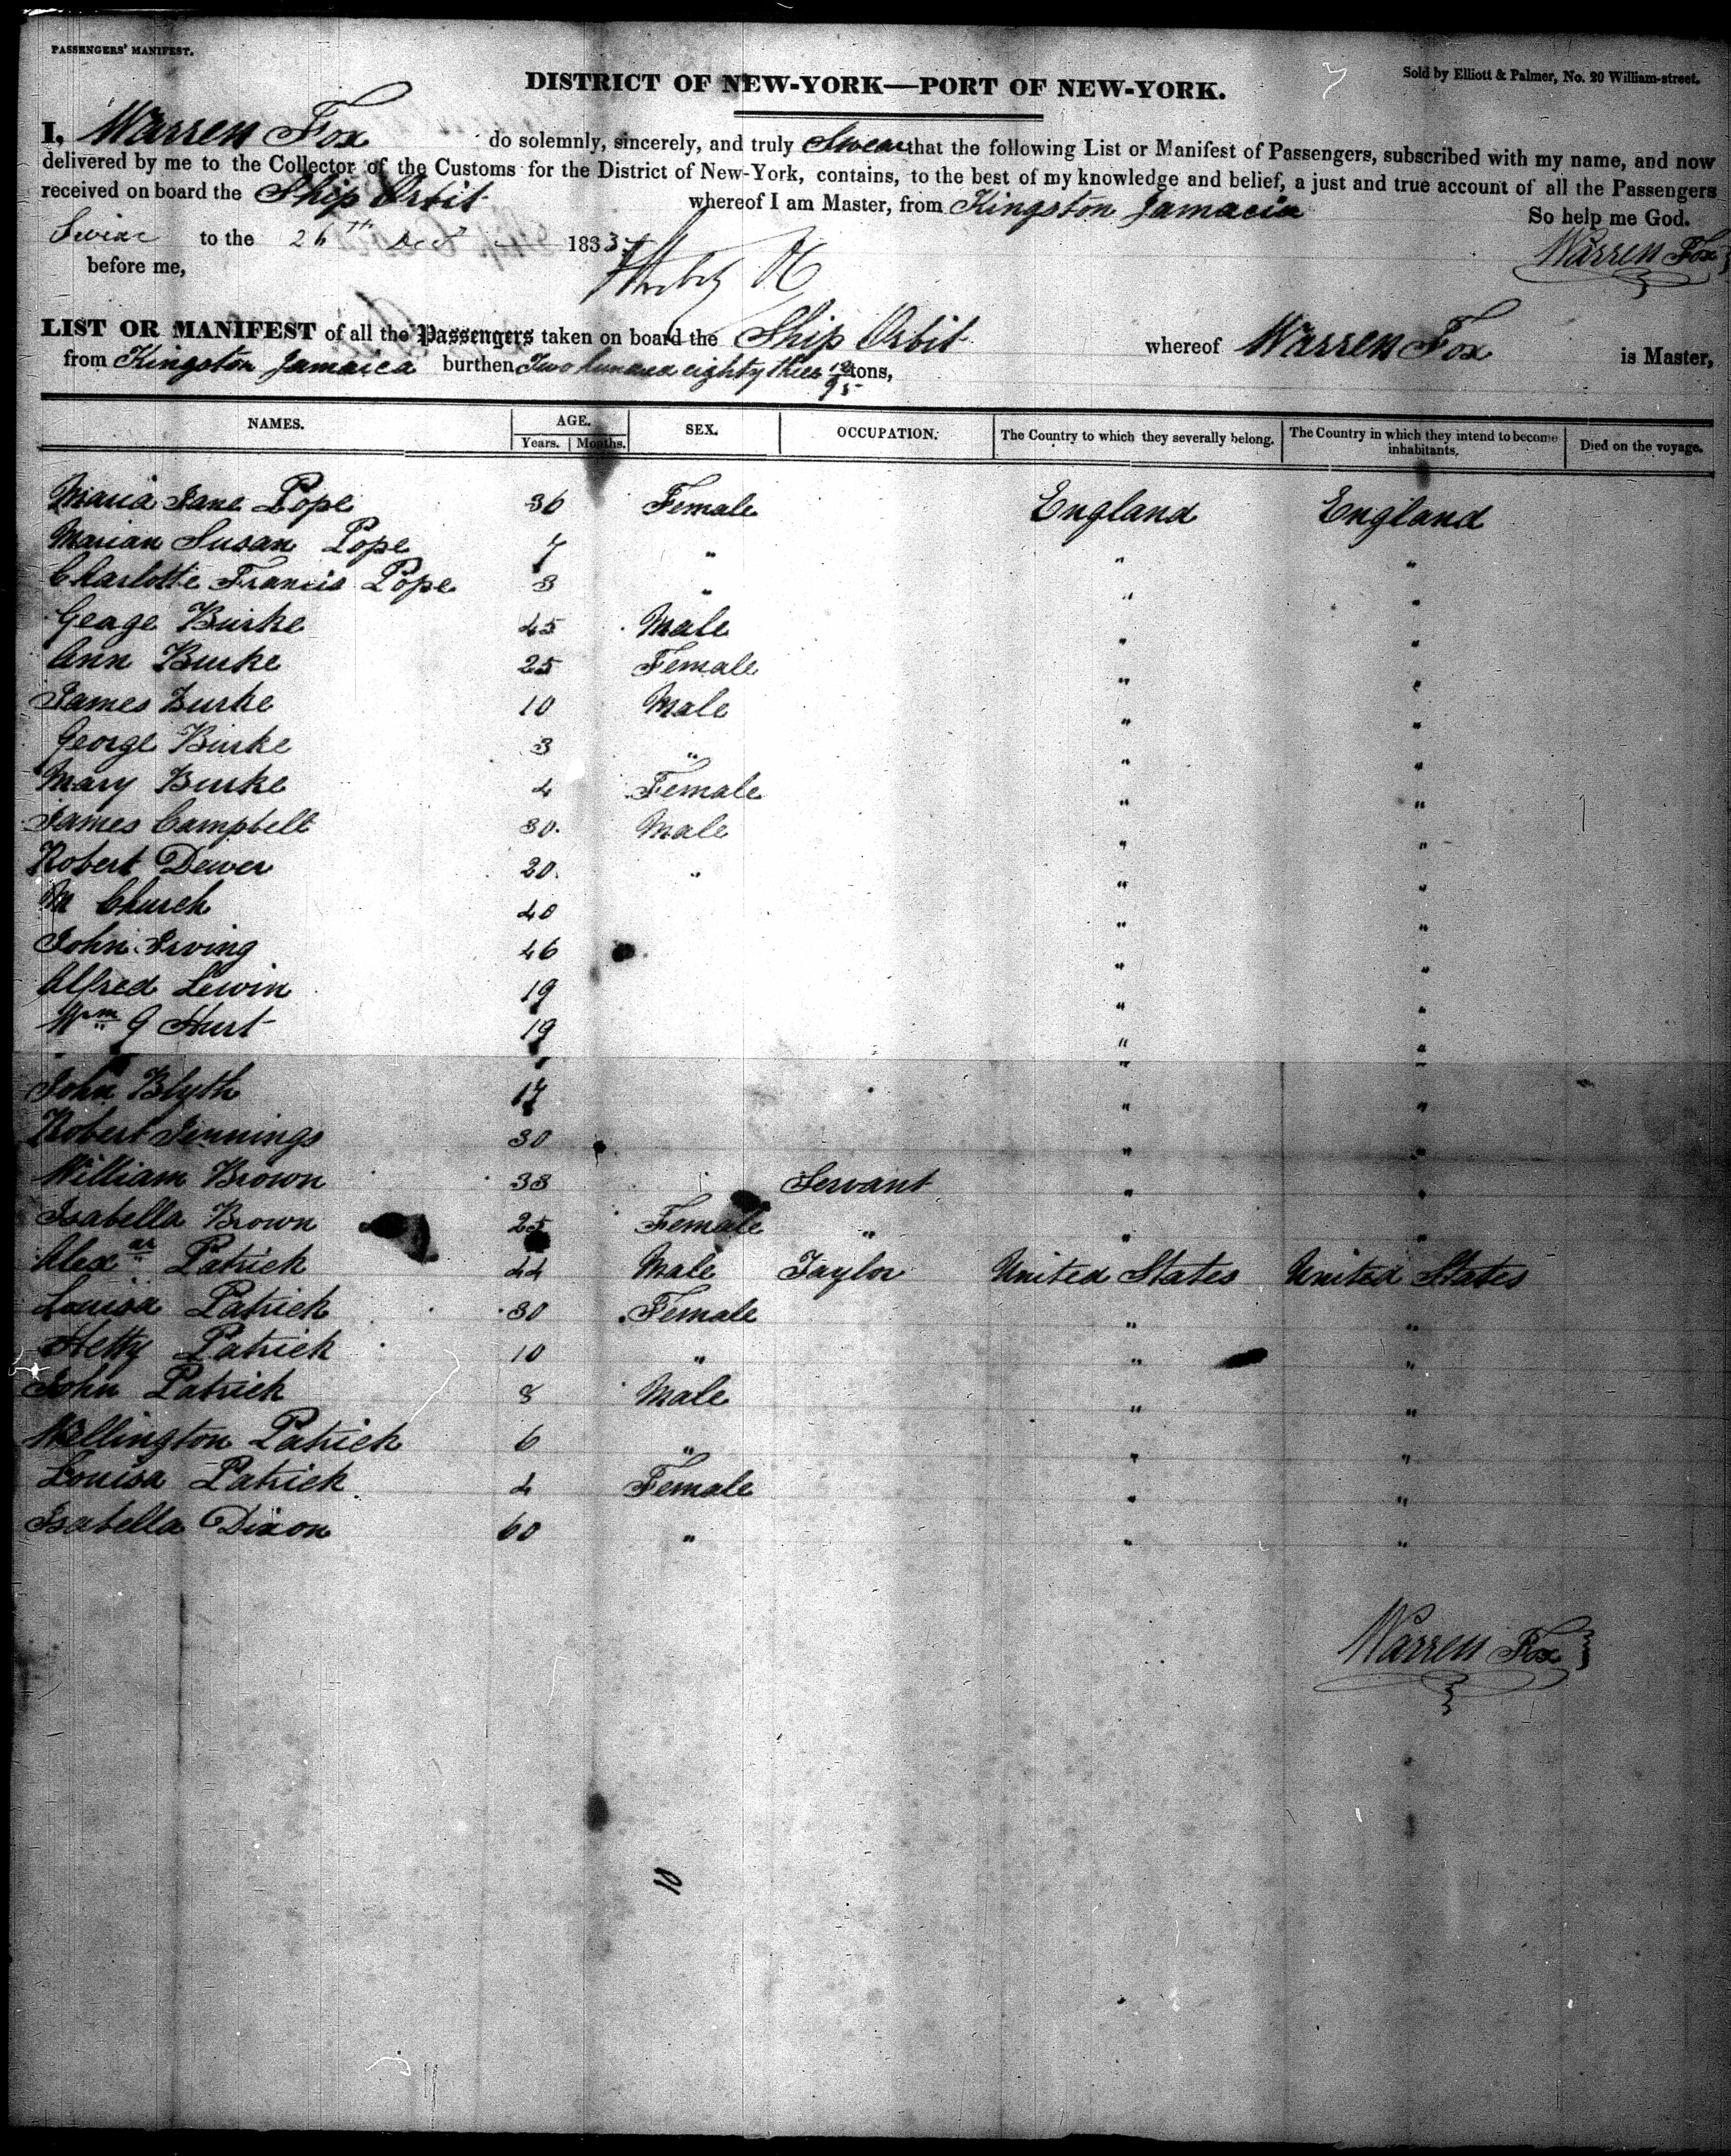 PASSENGERS' MANIFEST.
Sold by Elliott & Palmer, No. 20 William-street.
DISTRICT OF NEW-YORK—PORT OF NEW-YORK.
I, Warren Fox do solemnly, sincerely, and truly Swear that the following List or Manifest of Passengers, subscribed with my name, and now
delivered by me to the Collector of the Customs for the District of New-York, contains, to the best of my knowledge and belief, a just and true account of all the Passengers
received on board the Ship Orbit whereof I am Master, from Kingston Jamacia
So help me God.
to the 26th 183
Warren Fox
before me,
LIST OR MANIFEST of all the Passengers taken on board the Ship Orbit whereof Warren Fox is Master,
from Kingston Jamaica burthen Two hundred eighty three tons,
NAMES. AGE. SEX. OCCUPATION. The Country to which they severally belong. The Country in which they intend to become inhabitants. Died on the voyage.
Years. Months.
Maria Jane Pope 36 Female England England
Marian Susan Pope 7 " " "
Charlotte Francis Pope 3 " " "
Geage Burke 45 Male " "
Ann Burke 25 Female " "
James Burke 10 Male " "
George Burke 3 " " "
Mary Burke 4 Female " "
James Campbell 30 Male " "
Robert Dewer 20 " " "
M Church 40 " "
John Irving 46 " "
Alfred Lewin 19 " "
Wm G Hurt 19 " "
John Blyth 17 " "
Robert Jennings 30 " "
William Brown 38 Servant " "
Isabella Brown 25 Female " " "
Alexar Patrick 44 Male Taylor United States United States
Louisa Patrick 30 Female " "
Hetty Patrick 10 " " "
John Patrick 8 Male " "
Wellington Patrick 6 " " "
Louisa Patrick 4 Female " "
Isabella Dixon 60 " " "
Warren Fox
10